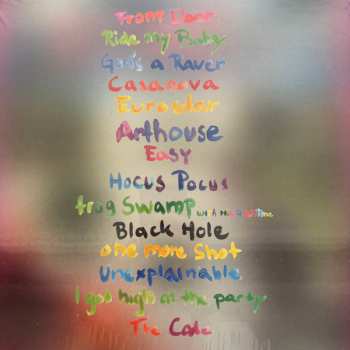 Front Door
Ride My Baby
God's a Raver
Casanova
Eurostar
Arthouse
Easy
Hocus Pocus
frog Swamp with
Black Hole
one more Shot
Unexplainable
I got high at the party
The Code